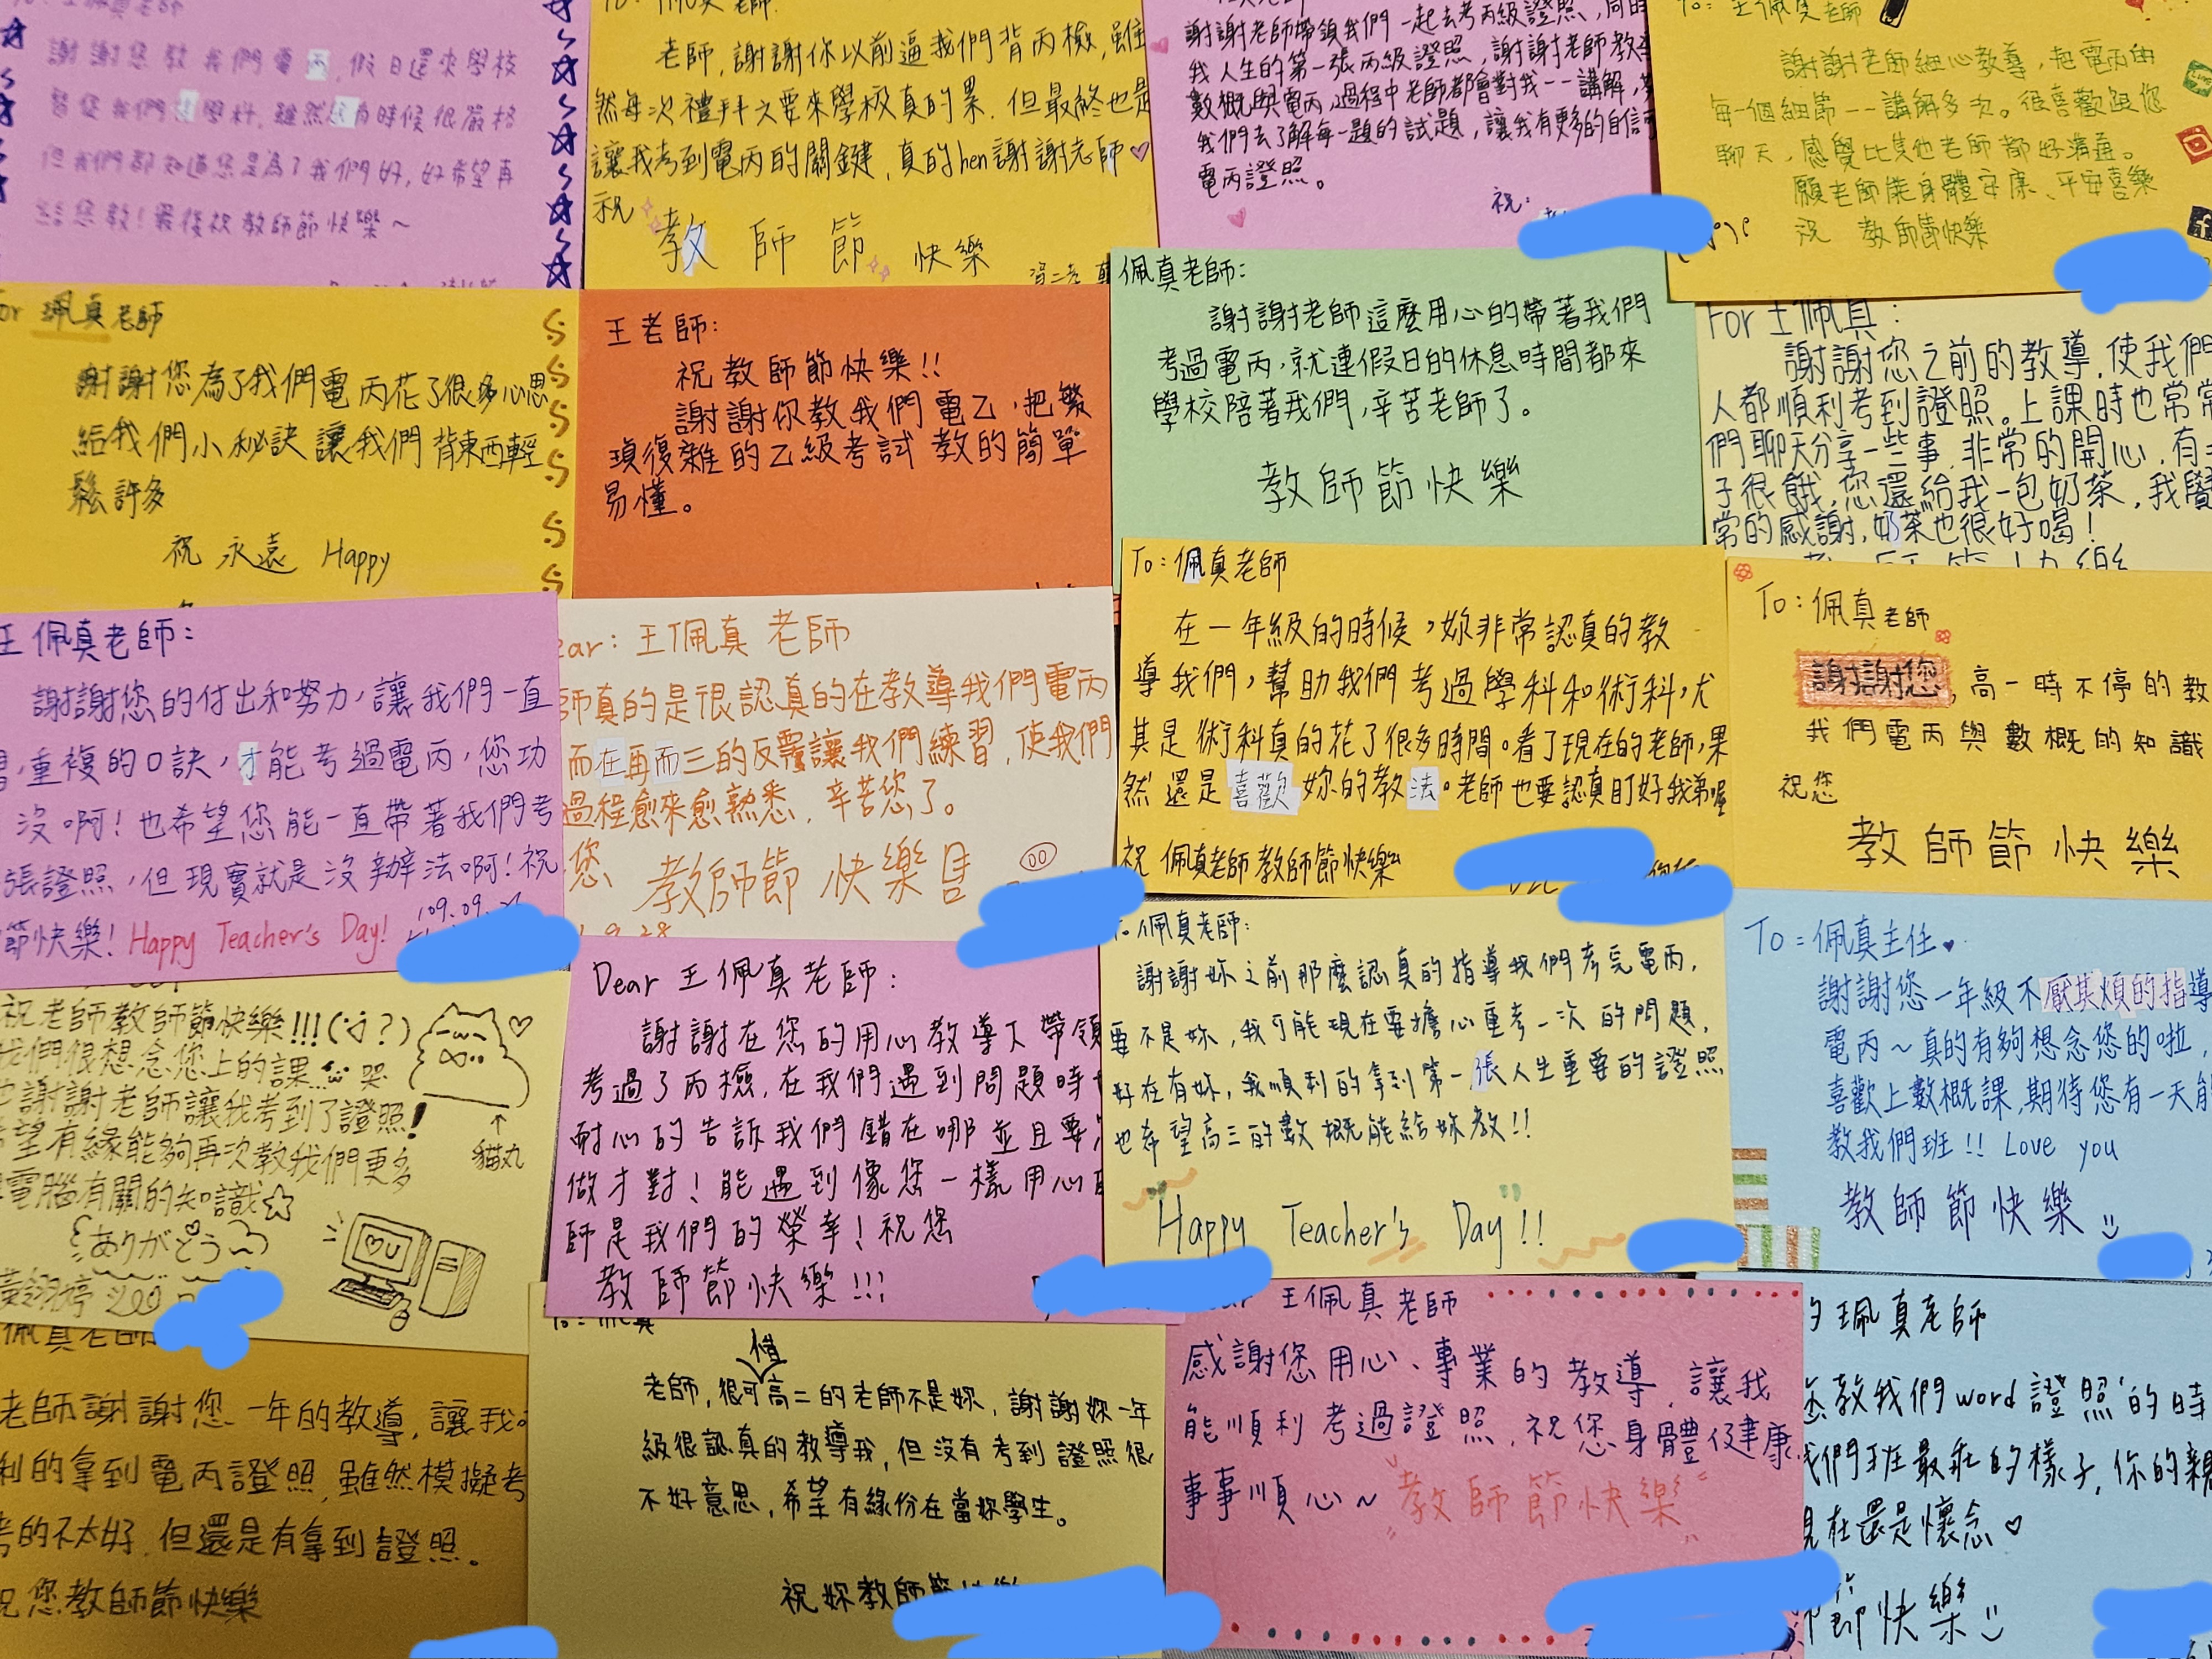 謝謝您教我們電丙,假日還來學校
督促我們讀學科,雖然您有時候很嚴格
但我們都知道您是為了我們好,好希望再
給您教!最後祝教師節快樂~
老師,謝謝你以前逼我們背丙檢,雖
然每次禮拜六要來學校真的累,但最終也是
讓我考到電丙的關鍵,真的hen謝謝老師♡
祝
教師節快樂
謝謝老師帶領我們一起去考丙級證照,同時
我人生的第一張丙級證照,謝謝老師教
數概與電丙,過程中老師都會對我一一講解,
我們去了解每一題的試題,讓我有更多的自信
電丙證照。
祝:
To: 王佩真老師
謝謝老師細心教導,把電丙的
每一個細節一一講解多次。很喜歡跟您
聊天,感覺比其他老師都好溝通。
願老師能身體安康、平安喜樂
祝 教師節快樂
For 珮真老師
謝謝您為了我們電丙花了很多心思
給我們小秘訣讓我們背東西輕
鬆許多
祝永遠 Happy
王老師:
祝教師節快樂!!
謝謝你教我們電乙,把繁
瑣復雜的乙級考試教的簡單
易懂。
佩真老師:
謝謝老師這麼用心的帶著我們
考過電丙,就連假日的休息時間都來
學校陪著我們,辛苦老師了。
教師節快樂
For 王佩真:
謝謝您之前的教導,使我們
人都順利考到證照。上課時也常常
們聊天分享一些事,非常的開心,有
子很餓,您還給我一包奶茶,我
常的感謝,奶茶也很好喝!
王佩真老師:
謝謝您的付出和努力,讓我們一直
習,重複的口訣,才能考過電丙,您功
沒啊!也希望您能一直帶著我們考
張證照,但現實就是沒辦法啊!祝
節快樂! Happy Teacher's Day!
109.09.
ear: 王佩真 老師
師真的是很認真的在教導我們電丙
而在再而三的反覆讓我們練習,使我們
過程愈來愈熟悉,辛苦您了。
您 教師節快樂
9.28
To: 佩真老師
在一年級的時候,妳非常認真的教
導我們,幫助我們考過學科和術科,尤
其是術科真的花了很多時間。看了現在的老師,果
然還是喜歡妳的教法。老師也要認真盯好我弟喔
祝 佩真老師教師節快樂
To: 佩真老師
謝謝您,高一時不停的教
我們電丙與數概的知識
祝您
教師節快樂
祝老師教師節快樂!!!
我們很想念您上的課...哭
也謝謝老師讓我考到了證照!
希望有緣能夠再次教我們更多
電腦有關的知識☆
ありがとう
貓丸
U
Dear 王佩真老師:
謝謝在您的用心教導下帶領
考過了丙檢,在我們遇到問題時
耐心的告訴我們錯在哪並且要
做才對!能遇到像您一樣用心
師是我們的榮幸!祝您
教師節快樂!!!
佩真老師:
謝謝妳之前那麼認真的指導我們考完電丙,
要不是妳,我可能現在要擔心重考一次的問題,
好在有妳,我順利的拿到第一張人生重要的證照
也希望高三的數概能給妳教!!
Happy Teacher's Day!!
To: 佩真主任♥
謝謝您一年級不厭其煩的指導
電丙~真的有夠想念您的啦,
喜歡上數概課,期待您有一天能
教我們班!! Love you
教師節快樂
佩真老師
老師謝謝您一年的教導,讓我
利的拿到電丙證照,雖然模擬考
考的不太好,但還是有拿到證照。
祝您教師節快樂
老師,很可惜高二的老師不是妳,謝謝妳一年
級很認真的教導我,但沒有考到證照很
不好意思,希望有緣份在當妳學生。
祝妳教師節快樂
王佩真老師
感謝您用心、事業的教導,讓我
能順利考過證照,祝您身體健康
事事順心~"教師節快樂"
珮真老師
您教我們word證照的時
我們班最乖的樣子,你的
現在還是懷念♡
師節快樂